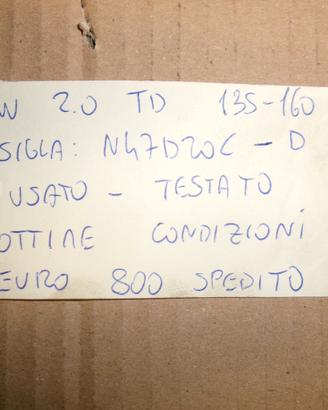 W 2.0 TD 135-160
SIGLA: N47D20C - D
USATO - TESTATO
OTTIME CONDIZIONI
EURO 800 SPEDITO